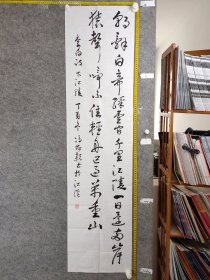 朝辭白帝綵雲間千里江陵一日還兩岸
猿聲啼不住輕舟已過萬重山
李白詩下江陵丁酉冬